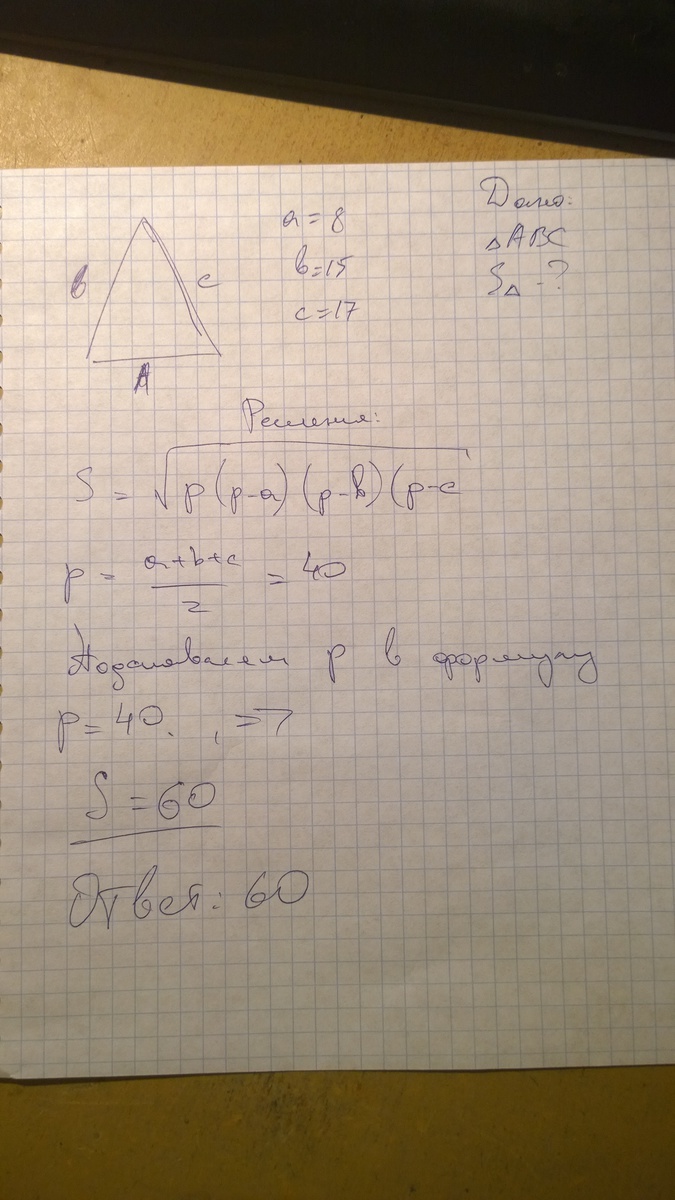 Дано:
△ABC
S△ - ?
a = 8
b = 15
c = 17
b
c
A
Решения:
S = √p(p-a)(p-b)(p-c
p = a+b+c / 2 = 40
Подставляем p в формулу
p = 40. , =>
S = 60
Ответ: 60